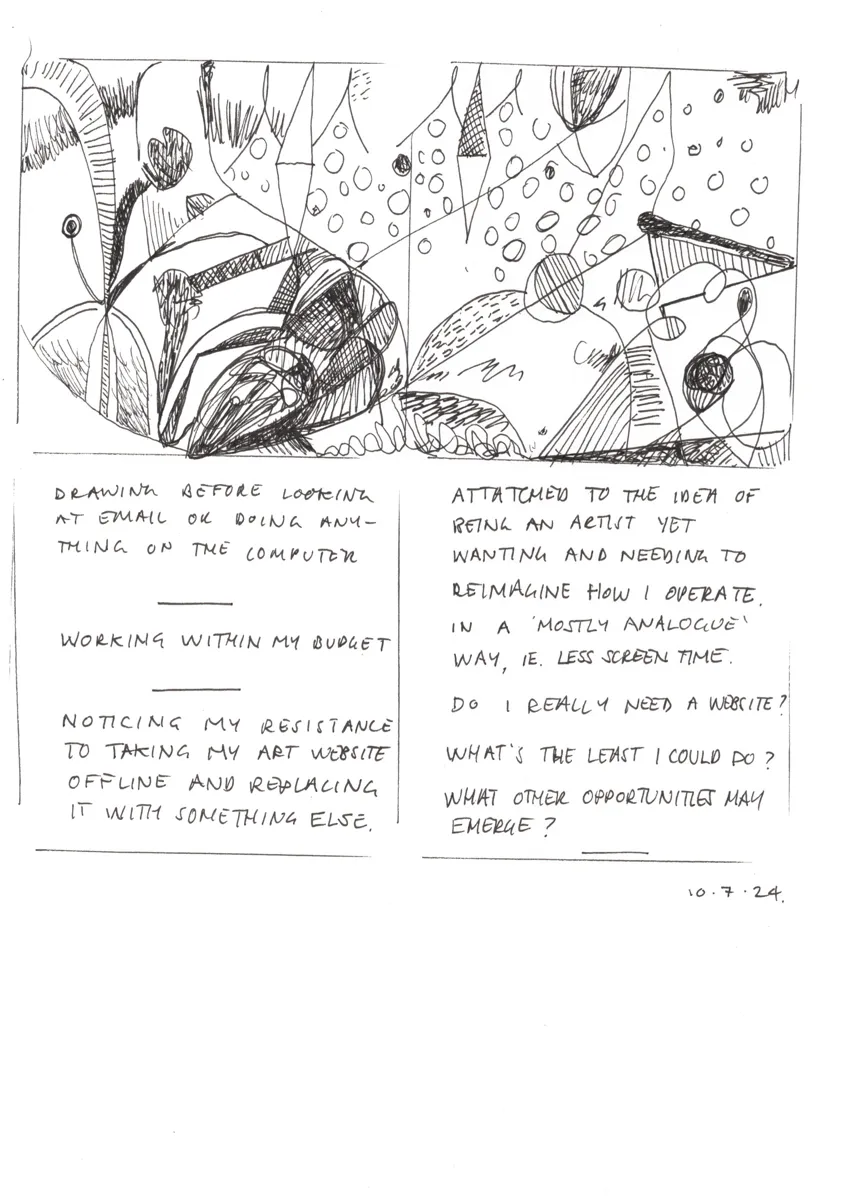 DRAWING BEFORE LOOKING
AT EMAIL OR DOING ANY-
THING ON THE COMPUTER
WORKING WITHIN MY BUDGET
NOTICING MY RESISTANCE
TO TAKING MY ART WEBSITE
OFFLINE AND REPLACING
IT WITH SOMETHING ELSE.
ATTATCMED TO THE IDEA OF
BEING AN ARTIST YET
WANTING AND NEEDING TO
REIMAGINE HOW I OPERATE.
IN A 'MOSTLY ANALOGUE'
WAY, IE. LESS SCREEN TIME.
DO I REALLY NEED A WEBSITE?
WHAT'S THE LEAST I COULD DO?
WHAT OTHER OPPORTUNITIES MAY
EMERGE?
10.7.24.